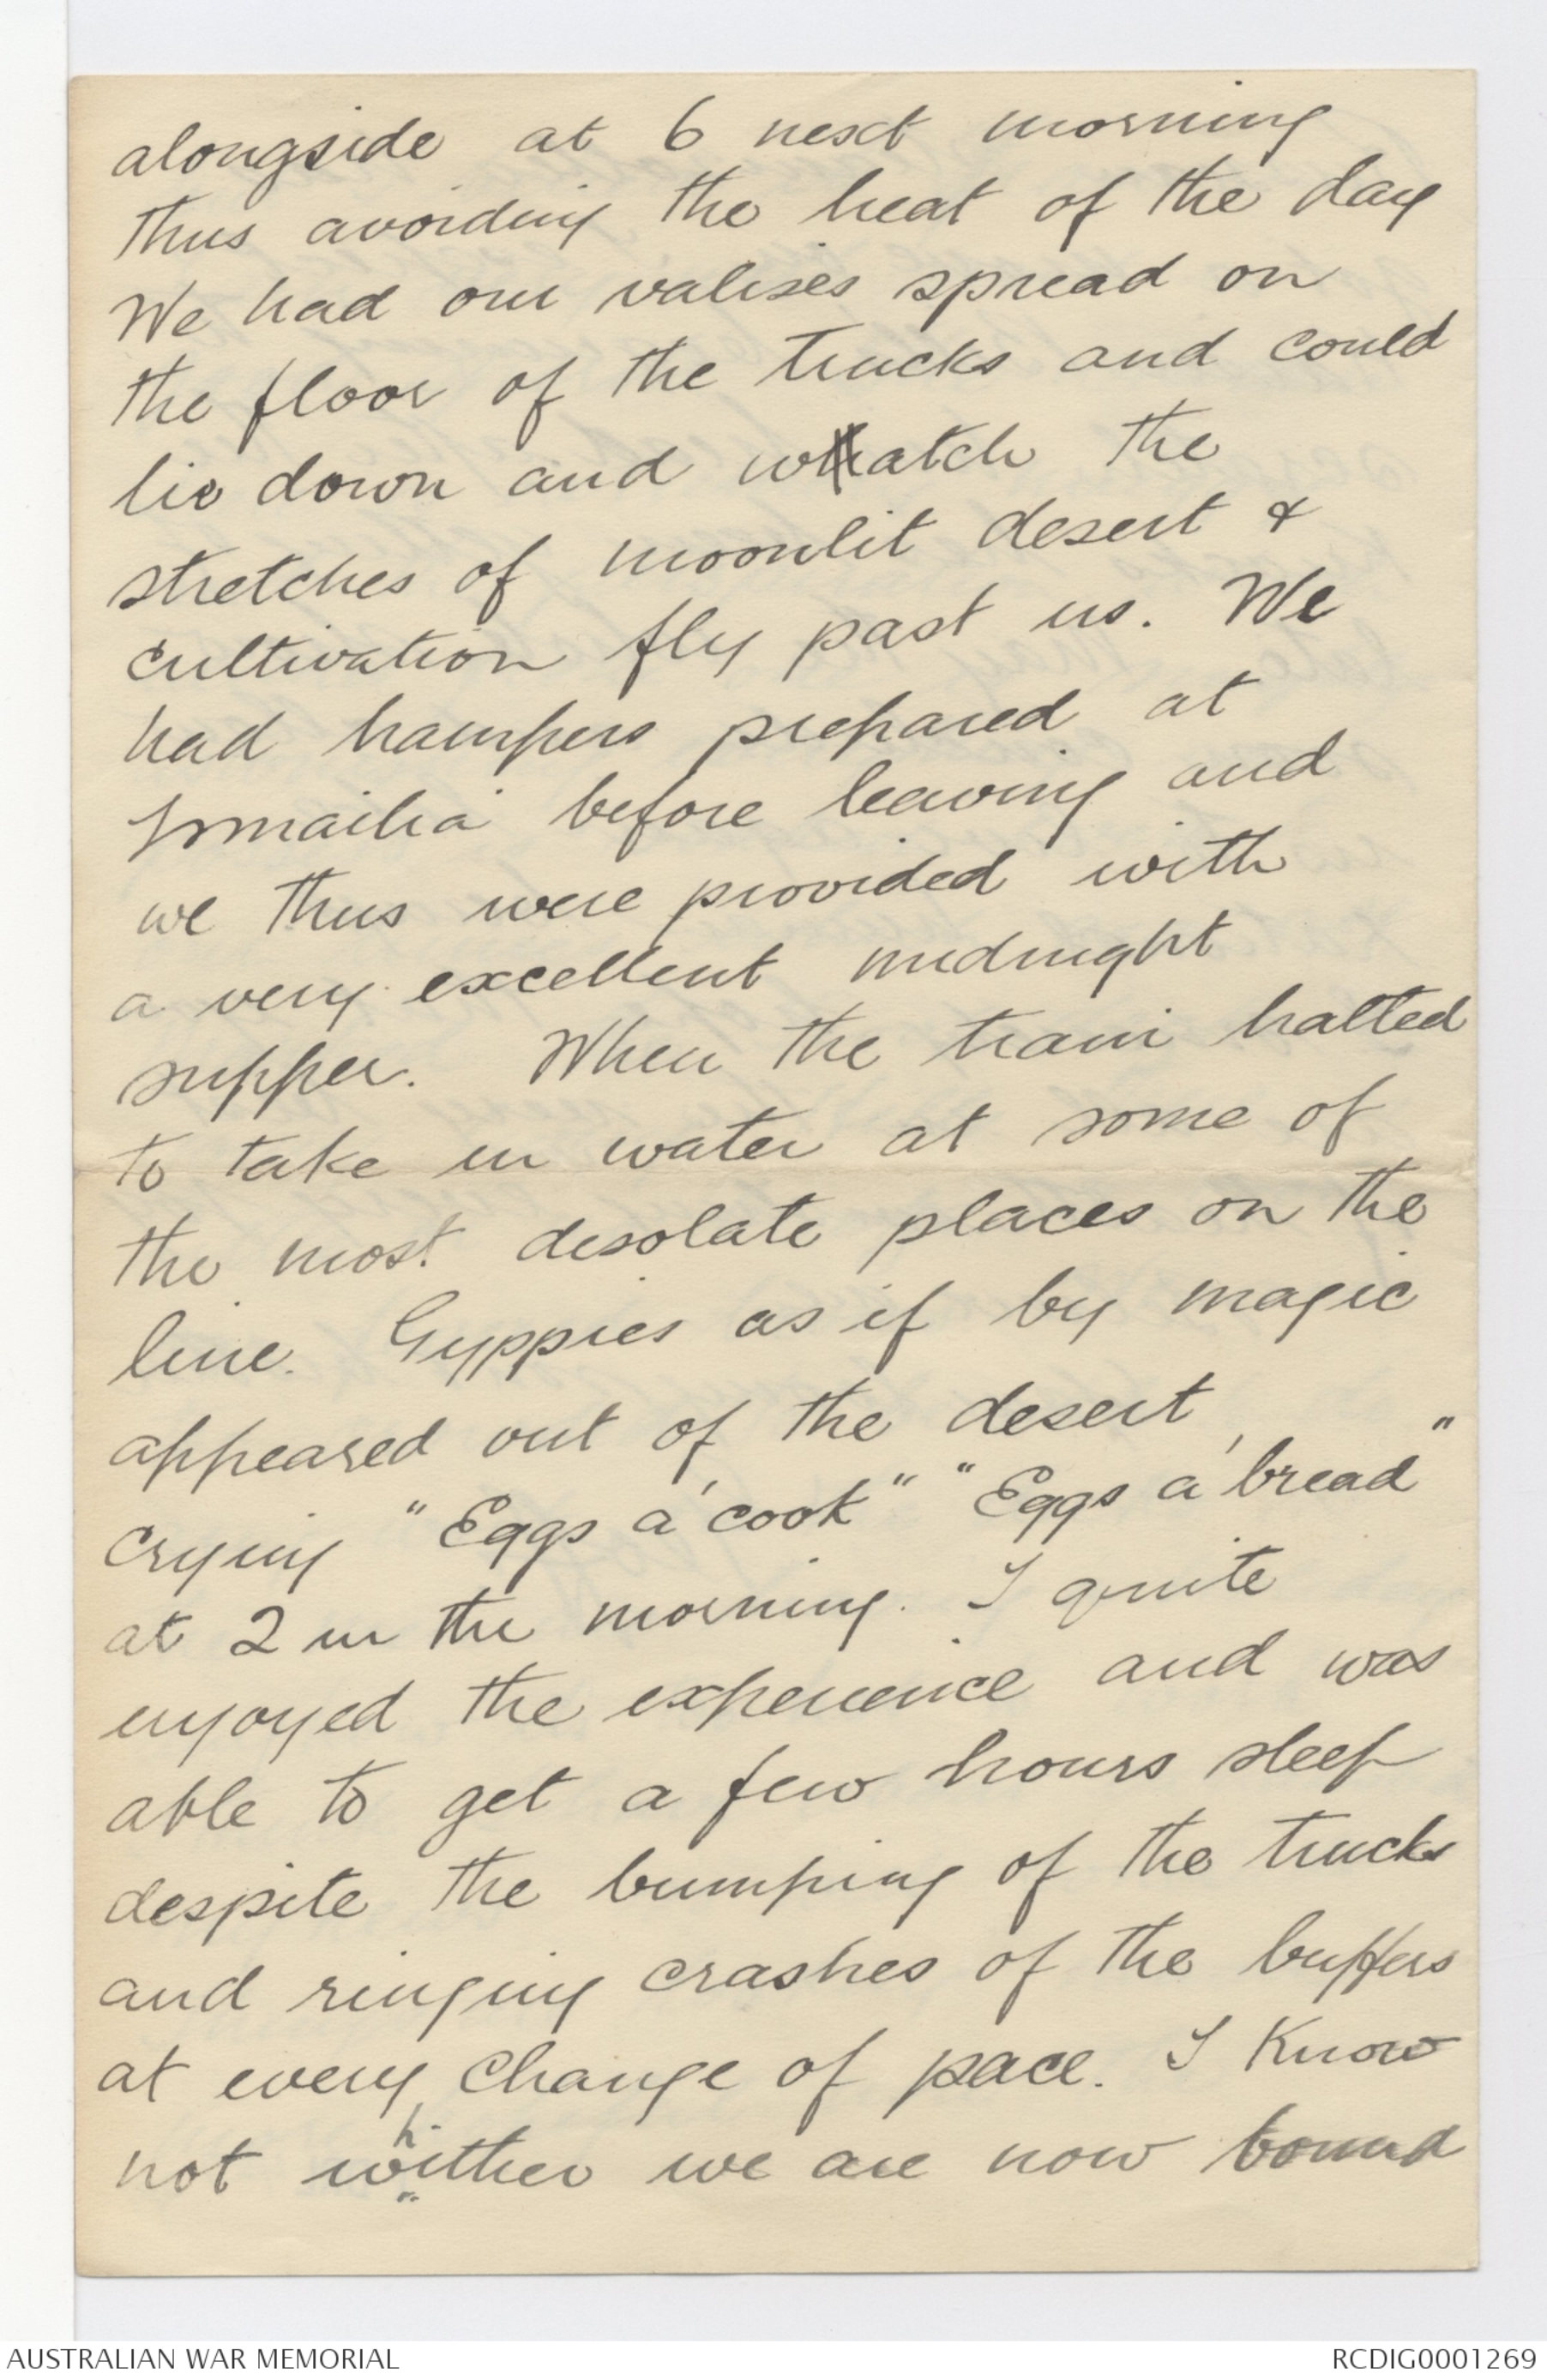 alongside at 6 next morning
thus avoiding the heat of the day
We had our valises spread on
the floor of the trucks and could
lie down and watch the
stretches of moonlit desert &
cultivation fly past us. We
had hampers prepared at
Ismailia before leaving and
we thus were provided with
a very excellent midnight
supper. When the train halted
to take in water at some of
the most desolate places on the
line. Gyppies as if by magic
appeared out of the desert,
crying "Eggs a' cook" "Eggs a' bread"
at 2 in the morning. I quite
enjoyed the experience and was
able to get a few hours sleep
despite the bumping of the trucks
and ringing crashes of the buffers
at every change of pace. I know
not whither we are now bound
AUSTRALIAN WAR MEMORIAL
RCDIG0001269